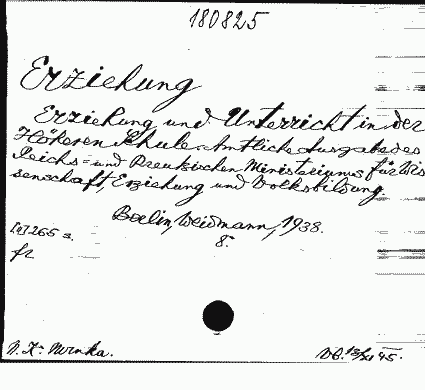 180825
Erziehung
Erziehung und Unterricht in der
Höheren Schule. Amtliche Ausgabe des
Reichs- und Preussischen Ministeriums für Wis
senschaft, Erziehung und Volksbildung.
Berlin, Weidmann, 1938.
8°.
fr
N. K=